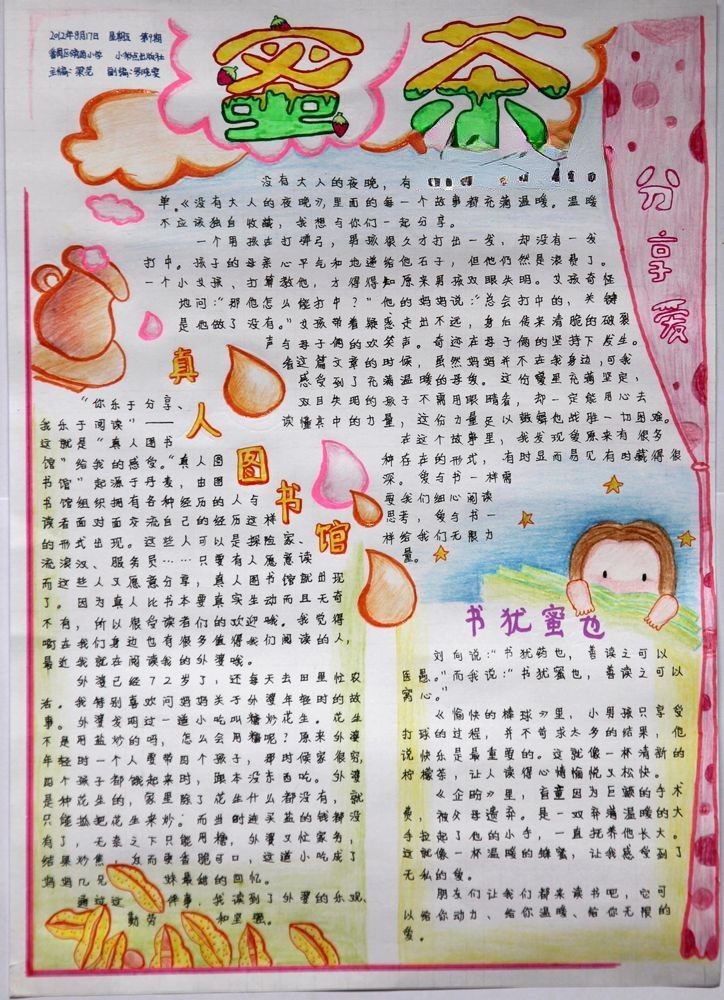 2012年8月17日 星期五 第9期
小学 小 出版社
主编:梁 副编:罗晓雯
蜜茶
分享爱
没有大人的夜晚,有
单。《没有大人的夜晚》,里面的每一个故事都充满温暖。温暖
不应该独自收藏,我想与你们一起分享。
一个男孩在打弹弓,男孩很久才打出一发,却没有一发
打中。孩子的母亲心平气和地递给他石子,但他仍然是浪费了。
一个小女孩、打算教他,才得得知原来男孩双眼失明。女孩奇怪
地问:“那他怎么能打中?”他的妈妈说:“总会打中的,关键
是他做了没有。”女孩带着疑惑走出不远,身后传来清脆的破裂
声与母子俩的欢笑声。奇迹在母子俩的坚持下发生。
看这篇文章的时候,虽然妈妈并不在我身边,可我
感受到了充满温暖的母爱。这份爱里充满坚定,
双目失明的孩子不需用眼睛看,却一定能用心去
读懂其中的力量,这份力量足以鼓舞他战胜一切困难。
在这个故事里,我发现爱原来有很多
种存在的形式,有时显而易见有时藏得很
深。爱与书一样需
要我们细心阅读
思考,爱与书一
样给我们无限力
量。
真人图书馆
“你乐于分享、
我乐于阅读”——
这就是“真人图书
馆”给我的感受。“真人图
书馆”起源于丹麦,由图
书馆组织拥有各种经历的人与
读者面对面交流自己的经历这样
的形式出现。这些人可以是探险家、
流浪汉、服务员……只要有人愿意读
而这些人又愿意分享,真人图书馆就出现
了。因为真人比书本要真实生动而且无奇
不有,所以很受读者们的欢迎哦。我觉得
在我们身边也有很多值得我们阅读的人,
最近我就在阅读我的外婆哦。
外婆已经72岁了,还每天去田里忙农
活。我特别喜欢问妈妈关于外婆年轻时的故
事。外婆发明过一道小吃叫糖炒花生。花生
不是用盐炒的吗,怎么会用糖呢?原来外婆
年轻时一个人要带四个孩子,那时候家很穷,
四个孩子都饿起来时,跟本没东西吃。外婆
是种花生的,家里除了花生什么都没有,就
只能抓把花生来炒。而当时连买盐的钱都没
有了,无奈之下只能用糖,外婆又忙家务,
结果炒焦 反而更香脆可口,这道小吃成了
妈妈几兄 妹最甜的回忆。
通过这 件事,我读到了外婆的乐观、
勤劳 和坚强。
书犹蜜也
刘向说:“书犹药也,善读之可以
医愚。”而我说:“书犹蜜也,善读之可以
窝心。”
《愉快的棒球》里,小男孩只享受
打球的过程,并不苛求太多的结果,他
说快乐是最重要的。这就像一杯清新的
柠檬茶,让人读得心情愉悦又松快。
《企盼》里,盲童因为巨额的手术
费,被父母遗弃。是一双充满温暖的大
手拉起了他的小手,一直抚养他长大。
这就像一杯温暖的蜂蜜,让我感受到了
无私的爱。
朋友们让我们都来读书吧,它可
以给你动力、给你温暖、给你无限的
爱。